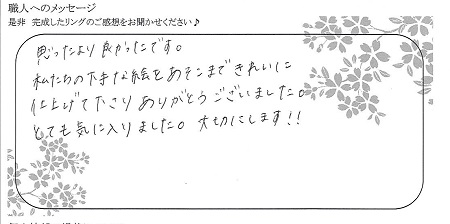 職人へのメッセージ
是非 完成したリングのご感想をお聞かせください♪
思ったより良かったです。
私たちの下手な絵をあそこまできれいに
仕上げて下さりありがとうございました。
とても気に入りました。大切にします!!